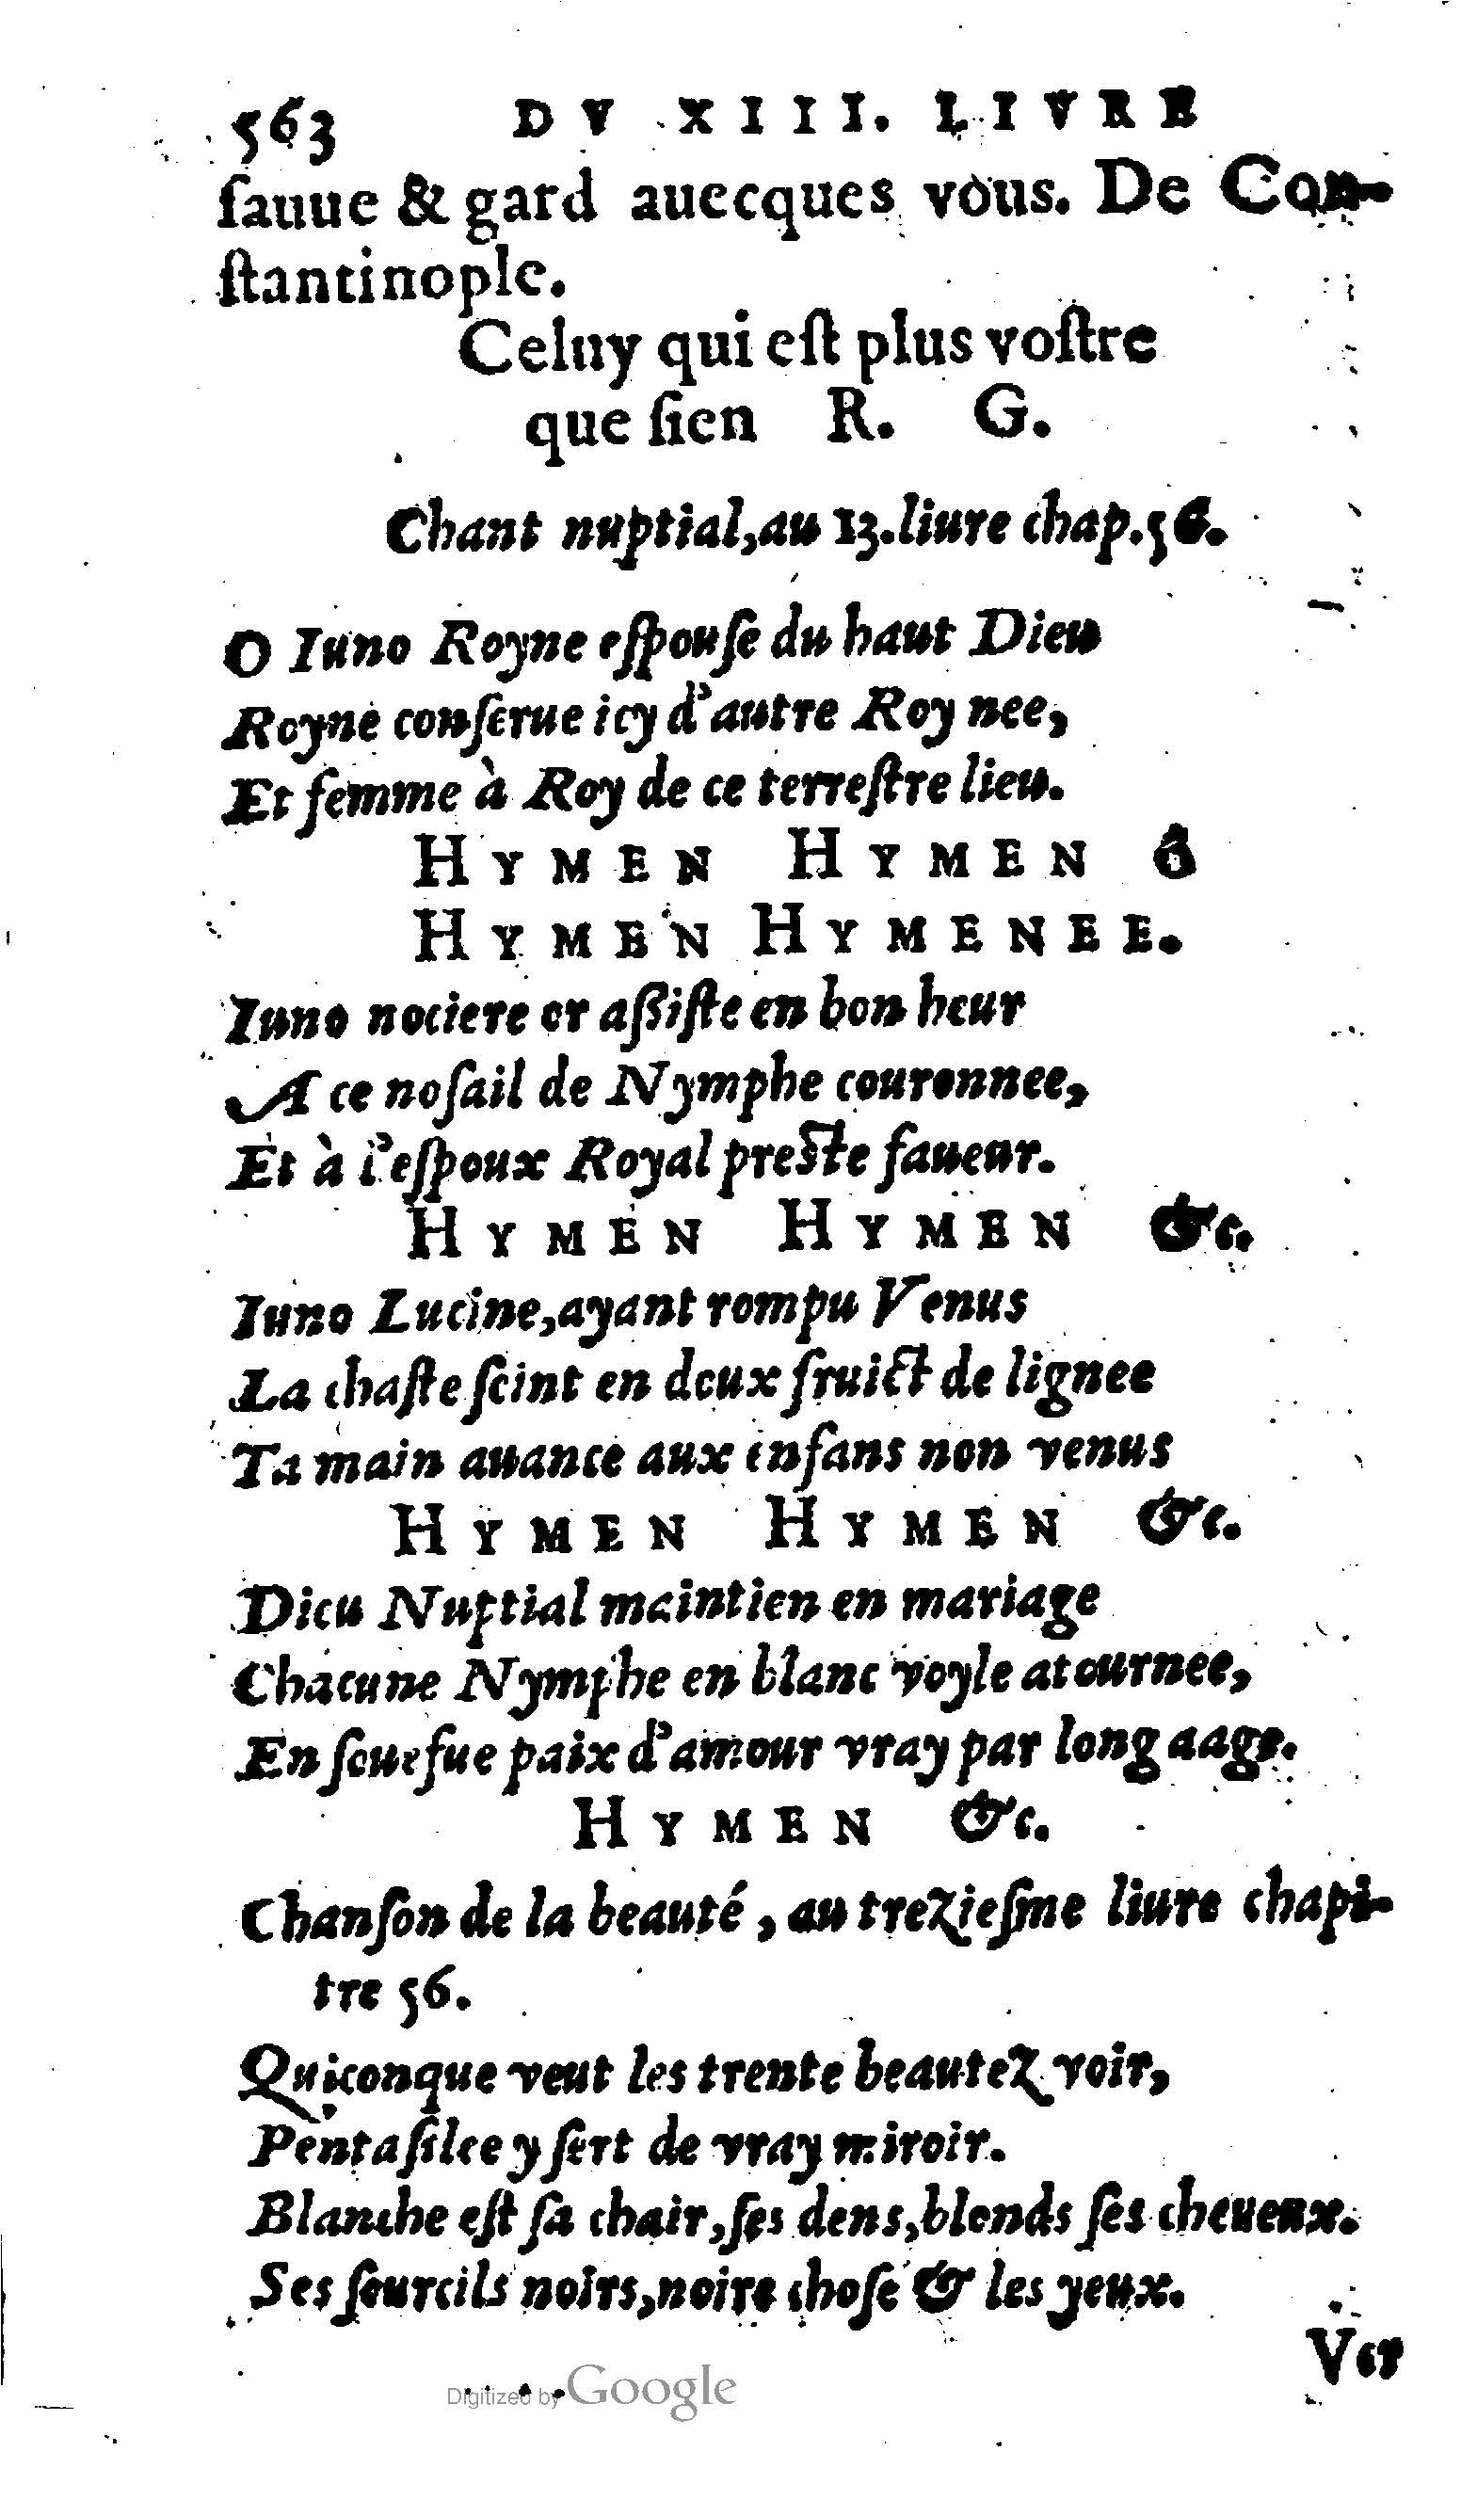 563 DV XIII. LIVRE
ſauue & gard auecques vous. De Con-
ſtantinople.
Celuy qui eſt plus voſtre
que ſien R. G.
Chant nuptial,au 13.liure chap.56.
O Iuno Royne eſpouſe du haut Dieu
Royne conſerue icy d'autre Roy nee,
Et femme à Roy de ce terreſtre lieu.
HYMEN HYMEN ô
HYMEN HYMENEE.
Iuno nociere or aſsiſte en bon heur
A ce noſail de Nymphe couronnee,
Et à l'eſpoux Royal preſte faueur.
HYMEN HYMEN &c.
Iuno Lucine,ayant rompu Venus
La chaſte ſeint en doux fruict de lignee
Ta main auance aux enfans non venus
HYMEN HYMEN &c.
Dieu Nuptial maintien en mariage
Chacune Nymphe en blanc voyle atournee,
En ſouefue paix d'amour vray par long aage.
HYMEN &c.
Chanſon de la beauté, au trezieſme liure chapi-
tre 56.
Quiconque veut les trente beautez voir,
Pentaſilee y ſert de vray miroir.
Blanche eſt ſa chair,ſes dens,blonds ſes cheueux.
Ses ſourcils noirs,noire choſe & les yeux.
Ver
Digitized by Google